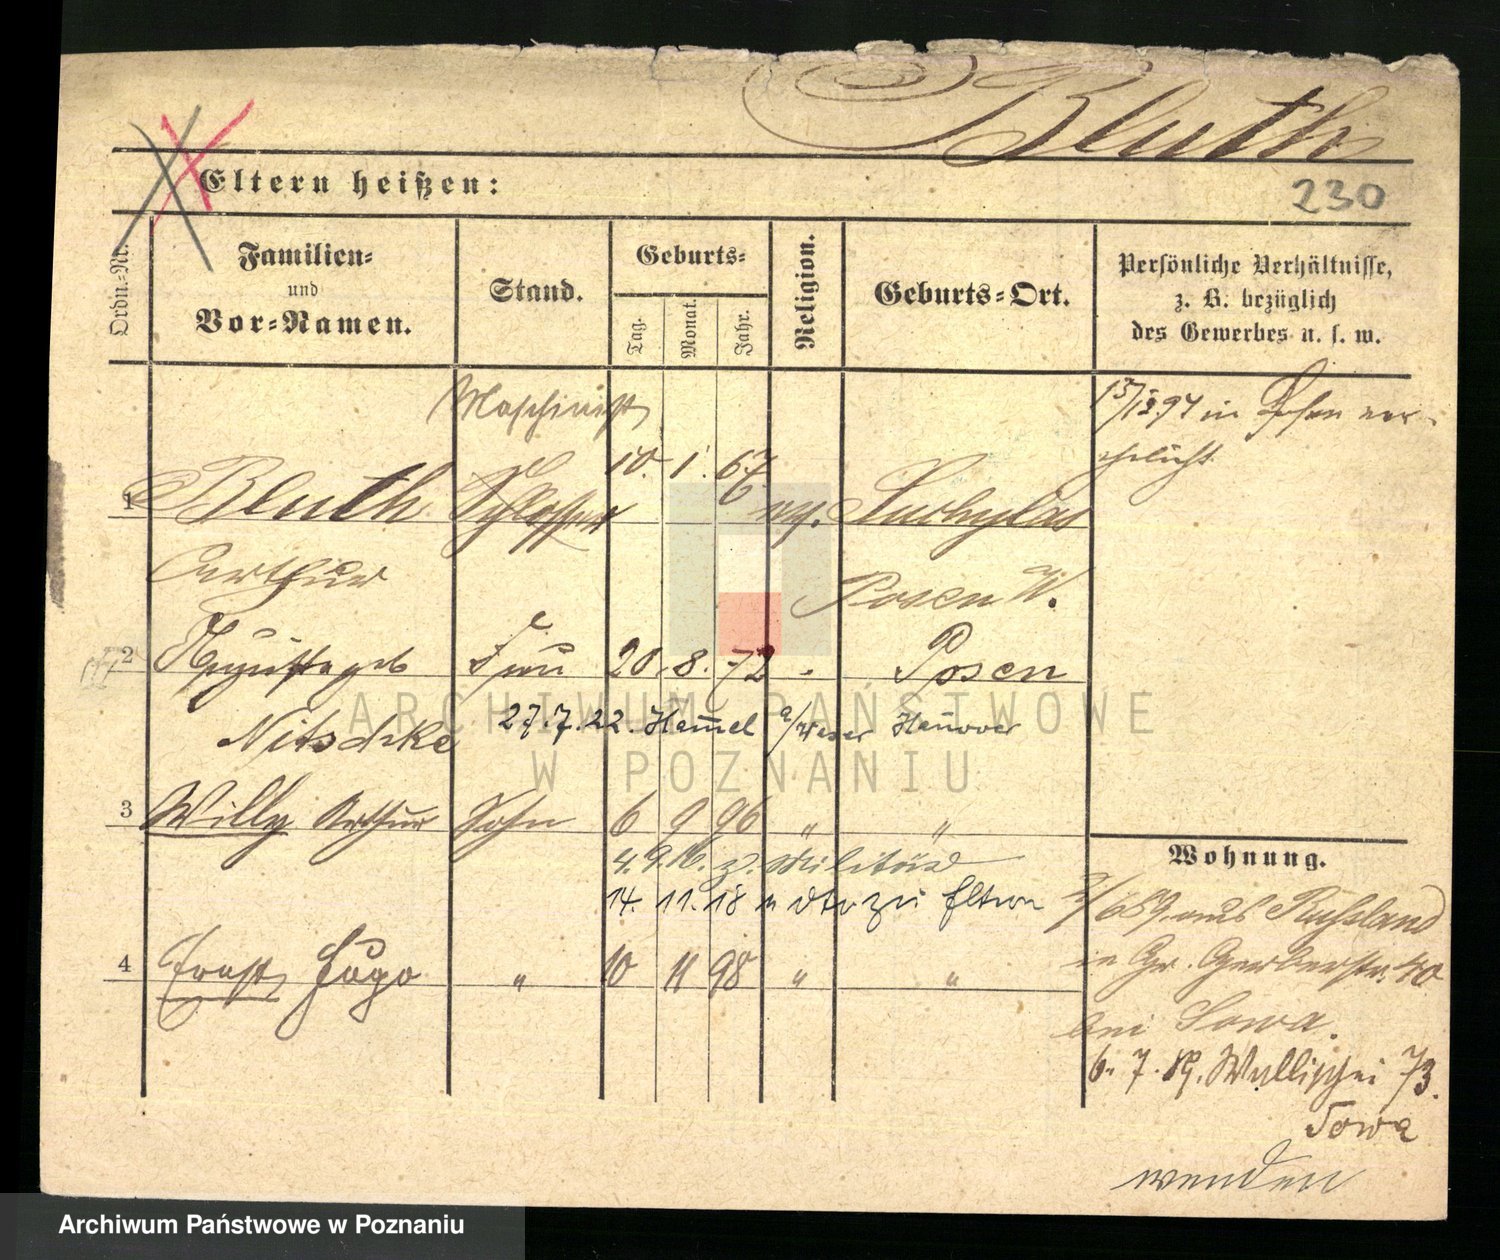 Bluth
Eltern heißen:
230
Ordn.-Nr.
Familien-
und
Vor-Namen.
Stand.
Geburts-
Tag.
Monat.
Jahr.
Religion.
Geburts-Ort.
Persönliche Verhältnisse,
z. B. bezüglich
des Gewerbes u. s. w.
Maschinist
in Posen ver-
ehelicht
1 Bluth Schlosser 10. 1. 67 ev. Suchylas
Arthur Posen W.
2 Auguste geb Frau 20. 8. 72 Posen
Nitschke 27.7.22. Hamel a/Weser Hannover
3 Willy Arthur Sohn 6 9 96 " "
4.9.16. z. Militär
14. 11. 18 zu Eltern
4 Ernst Hugo " 10 11 98 " "
Wohnung.
aus Russland
in Gr. Gerberstr. 40
bei Sowa.
6. 7. 89. Wallischei 73.
Sowa
wenden
ARCHIWUM PAŃSTWOWE
W POZNANIU
Archiwum Państwowe w Poznaniu